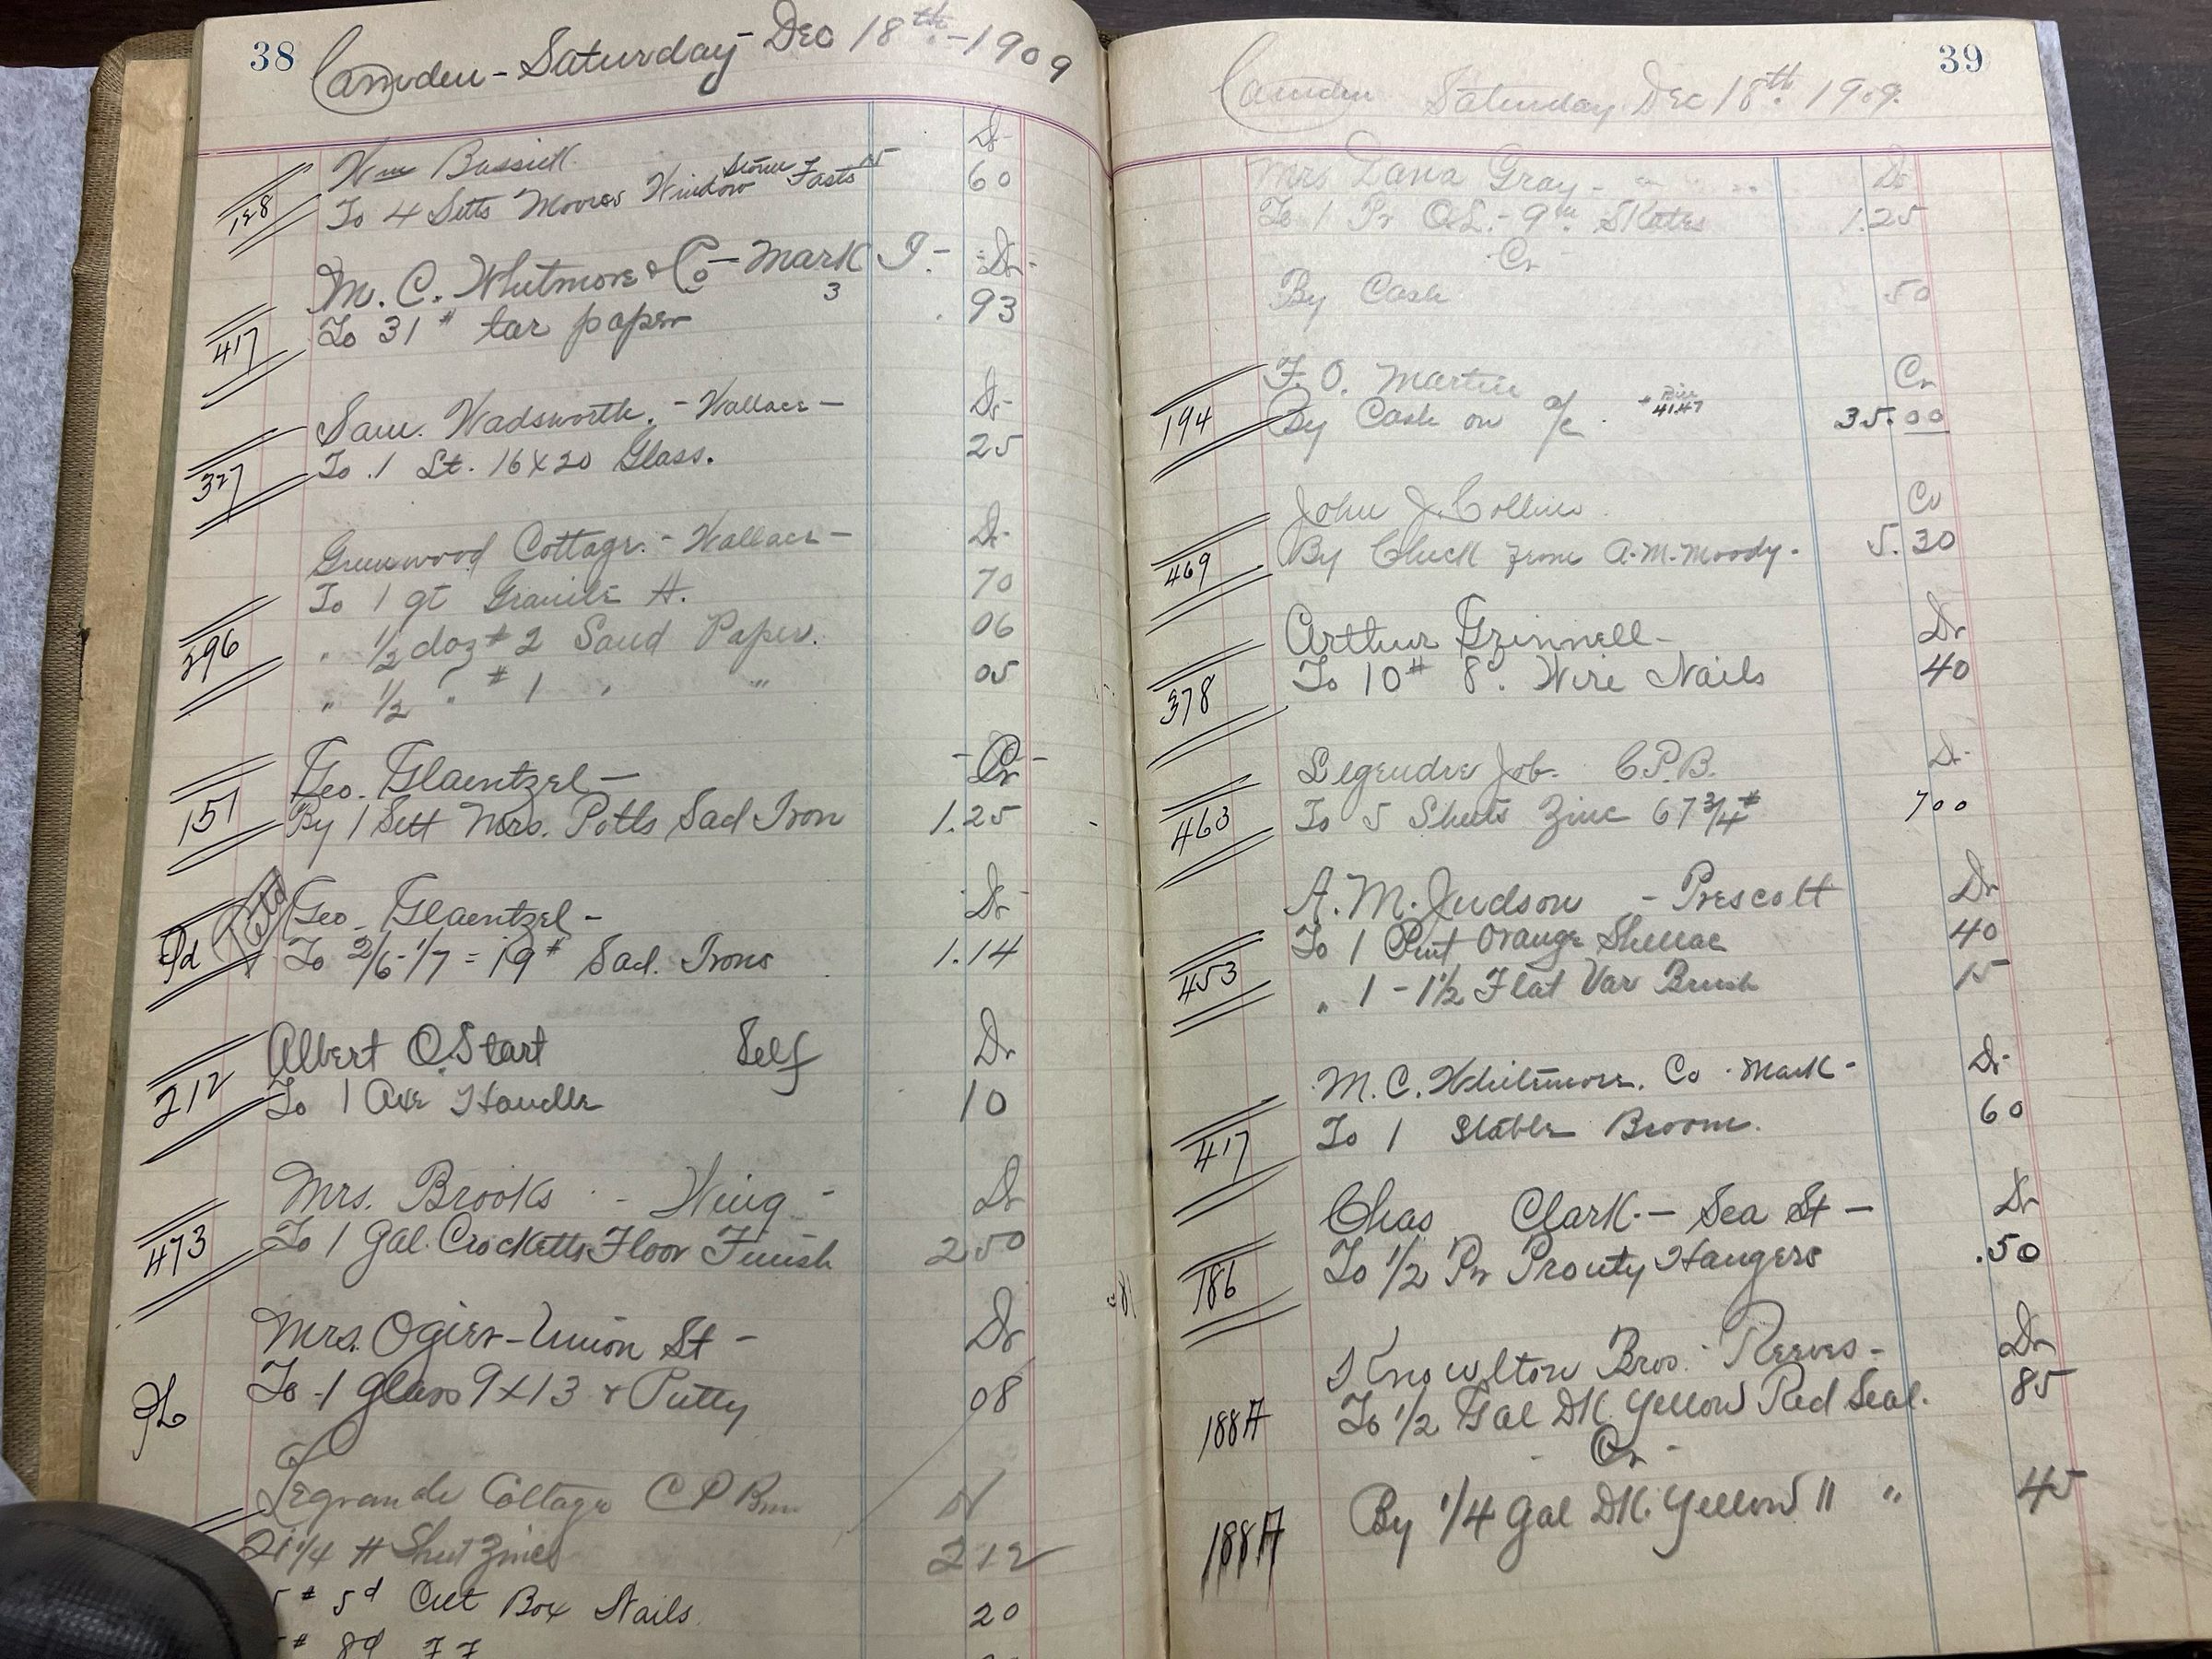 38
Camden - Saturday - Dec 18th - 1909
Wm Bassick Dr
128 To 4 Setts Moores Window Storm Fasts 15 60
M. C. Whitmore & Co - Mark I. - Dr -
417 To 31 # tar paper 3 93
Sam. Wadsworth. - Wallace - Dr -
327 To 1 Lt. 16 x 20 Glass. 25
Greenwood Cottage. - Wallace - Dr -
To 1 gt Granite H. 70
296 " 1/2 doz # 2 Sand Paper. 06
" 1/2 " # 1 " " 05
Geo. Glaentzel - - Cr -
151 By 1 Sett Mrs. Potts Sad Iron 1.25
Geo - Glaentzel - Dr -
Pd To 2/6 - 1/7 = 19 # Sad. Irons 1.14
Albert O. Start Self Dr
212 To 1 Axe Handle 10
Mrs. Brooks - Wing - Dr
473 To 1 Gal. Crocketts Floor Finish 2 50
Mrs. Ogier - Union St - Dr
To - 1 glass 9 x 13 & Putty 08
Legrande Cottage C P Dr
21 1/4 # Sheet Zinc 2 12
5 # 5d Cut Box Nails 20
# 8d F F
39
Camden Saturday. Dec 18th. 1909.
Mrs Dana Gray - Dr
To 1 Pr O.S. - 9 in. Skates 1.25
Cr
By Cash 50
F. O. Martin Cr
194 By Cash on a/c 41.47 35.00
John J. Collins Cr
469 By Check from A. M. Moody. 5.30
Arthur Grinnell - Dr
378 To 10 # 8d. Wire Nails 40
Legendre Job. C.P.B. Dr
463 To 5 Sheets Zinc 67 3/4 # 7 00
A. M. Judson - Prescott Dr
To 1 Pint Orange Shellac 40
453 " 1 - 1 1/2 Flat Var Brush 15
M. C. Whitmore. Co - Mark - Dr -
417 To 1 Stable Broom. 60
Chas Clark. - Sea St - Dr
186 To 1/2 Pr Prouty Hangers .50
Knowlton Bros. Reeves - Dr
188A To 1/2 Gal DK. Yellow Red Seal. 85
Cr -
188A By 1/4 Gal DK. Yellow " " 45